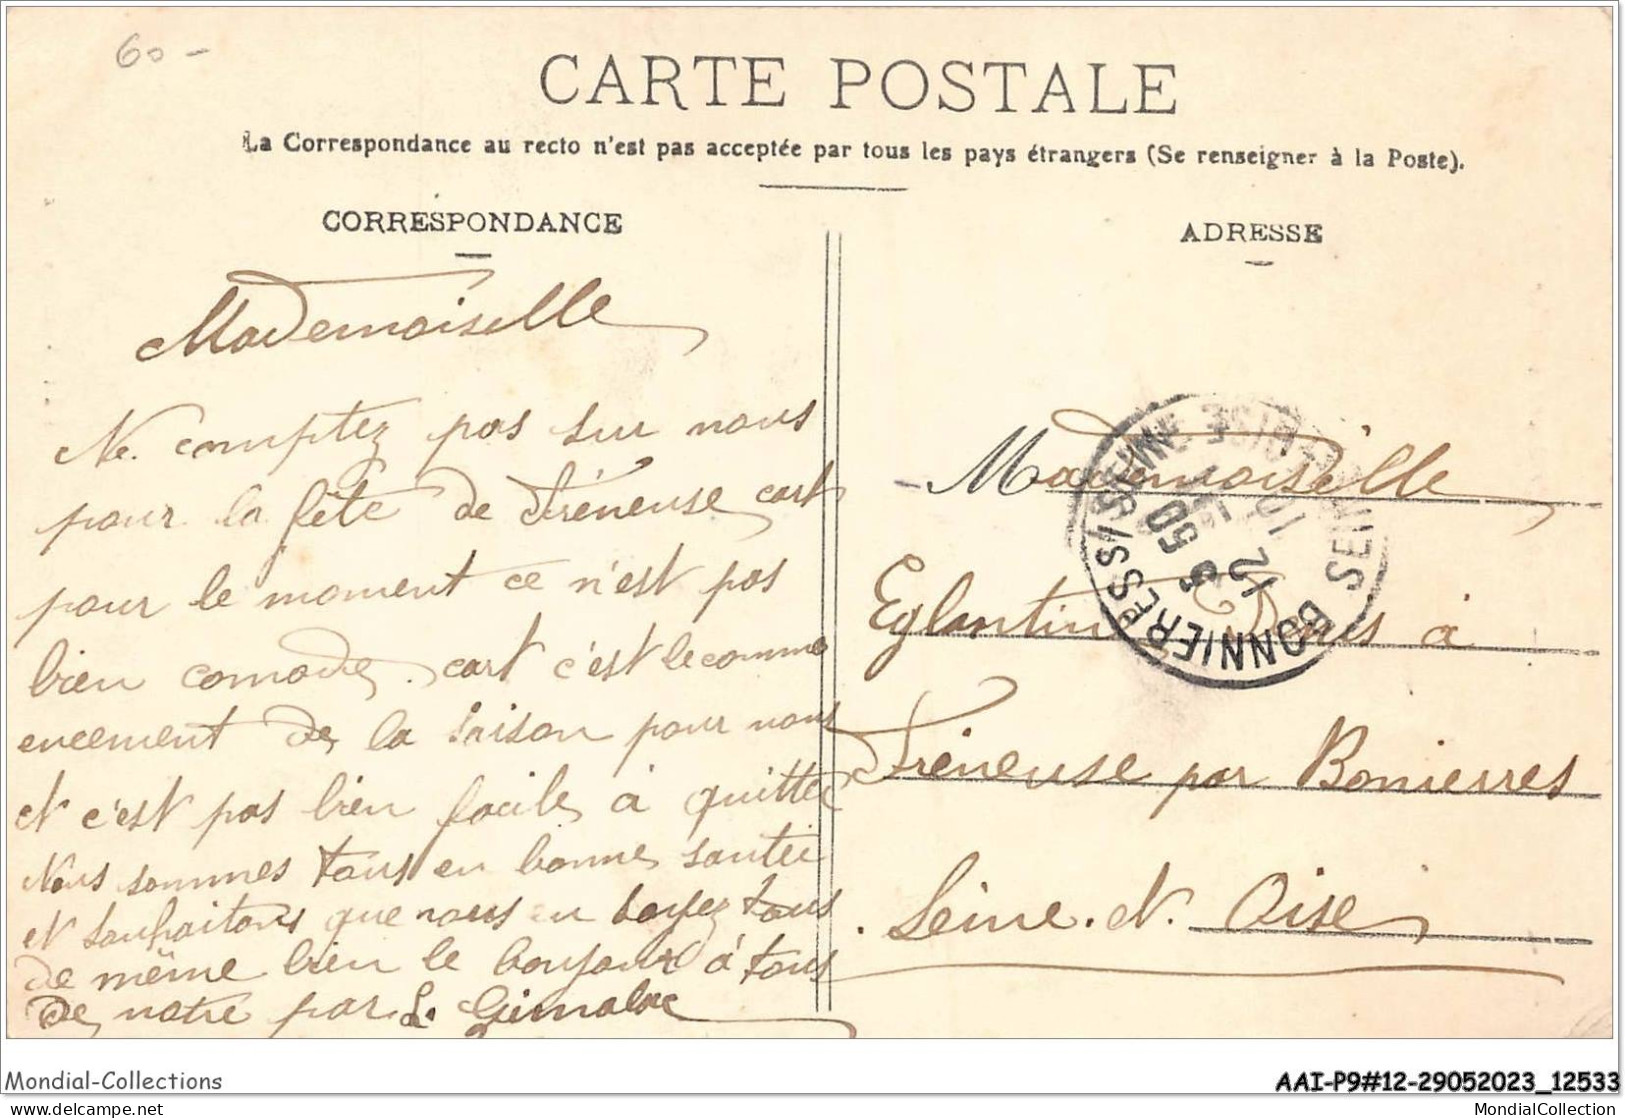 60 -
CARTE POSTALE
La Correspondance au recto n'est pas acceptée par tous les pays étrangers (Se renseigner à la Poste).
CORRESPONDANCE
Mademoiselle
Ne comptez pas sur nous
pour la fête de Fréneuse cart
pour le moment ce n'est pas
bien comode. cart c'est le comme
encement de la saison pour nous
et c'est pas bien facile à quitter
Nous sommes tous en bonne santée
et souhaitons que nous en soyez tous
de même bien le bonjour à tous
de notre par L.
ADRESSE
Mademoiselle
Eglantine Denis à
Fréneuse par Bonierres
Seine et Oise
BONNIERES S/SEINE
SEINE-ET-OISE
Mondial-Collections
AAI-P9#12-29052023_12533
delcampe.net
MondialCollection